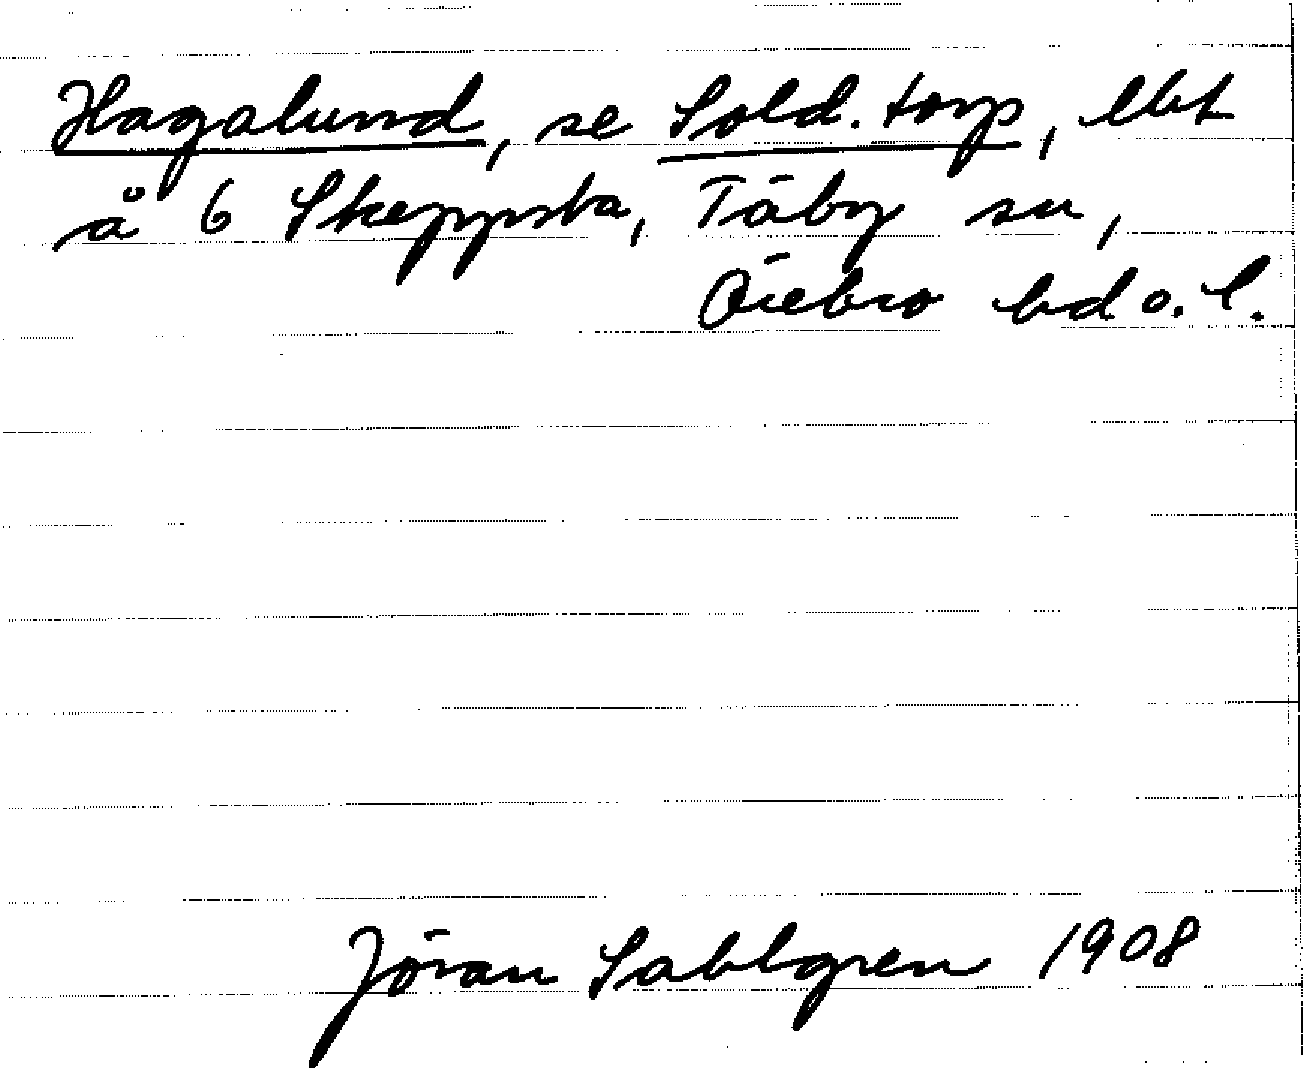 Hagalund, se Sold. torp, lht
å 6 Skeppsta, Täby sn,
Örebro hd o. l.
Jöran Sahlgren 1908